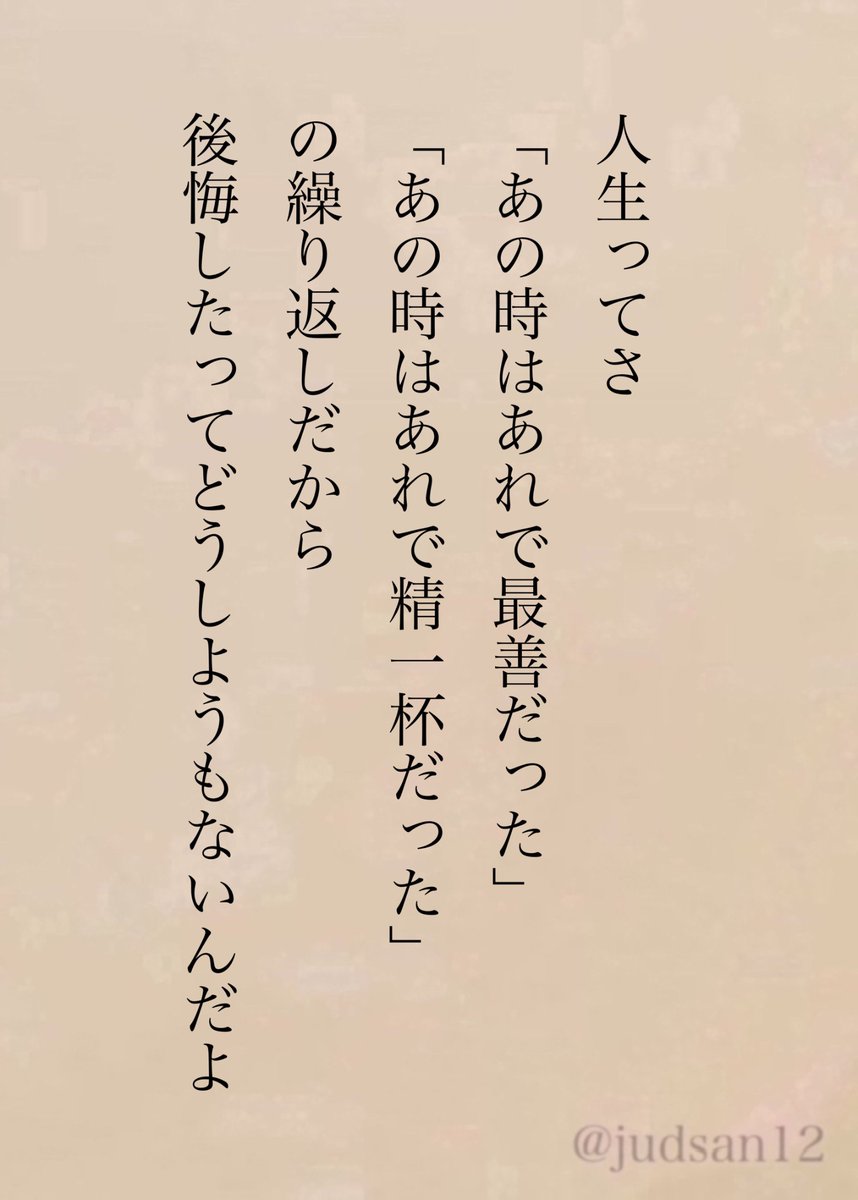 人生ってさ
「あの時はあれで最善だった」
「あの時はあれで精一杯だった」
の繰り返しだから
後悔したってどうしようもないんだよ
@judsan12